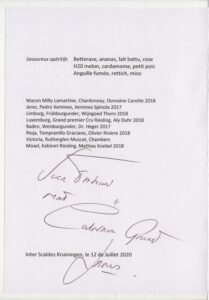 Savoureux apéritifs Betterave, ananas, lait battu, rose
H20 melon, cardamome, petit pois
Anguille fumée, rettich, miso
Macon Milly Lamartine, Chardonnay, Domaine Carette 2018
Jerez, Pedro Ximines, Ximines Spinola 2017
Limburg, Frühburgunder, Wijngoed Thorn 2018
Luxemburg, Grand premier Cru Riesling, Aly Duhr 2018
Baden, Weisburgunder, Dr. Heger 2017
Rioja, Tempranillo Graciano, Olivier Riviere 2018
Victoria, Rutherglen Muscat, Chambers
Mosel, Kabinet Riesling, Mathias Knebel 2018
Inter Scaldes Kruiningen, le 12 de Juillet 2020